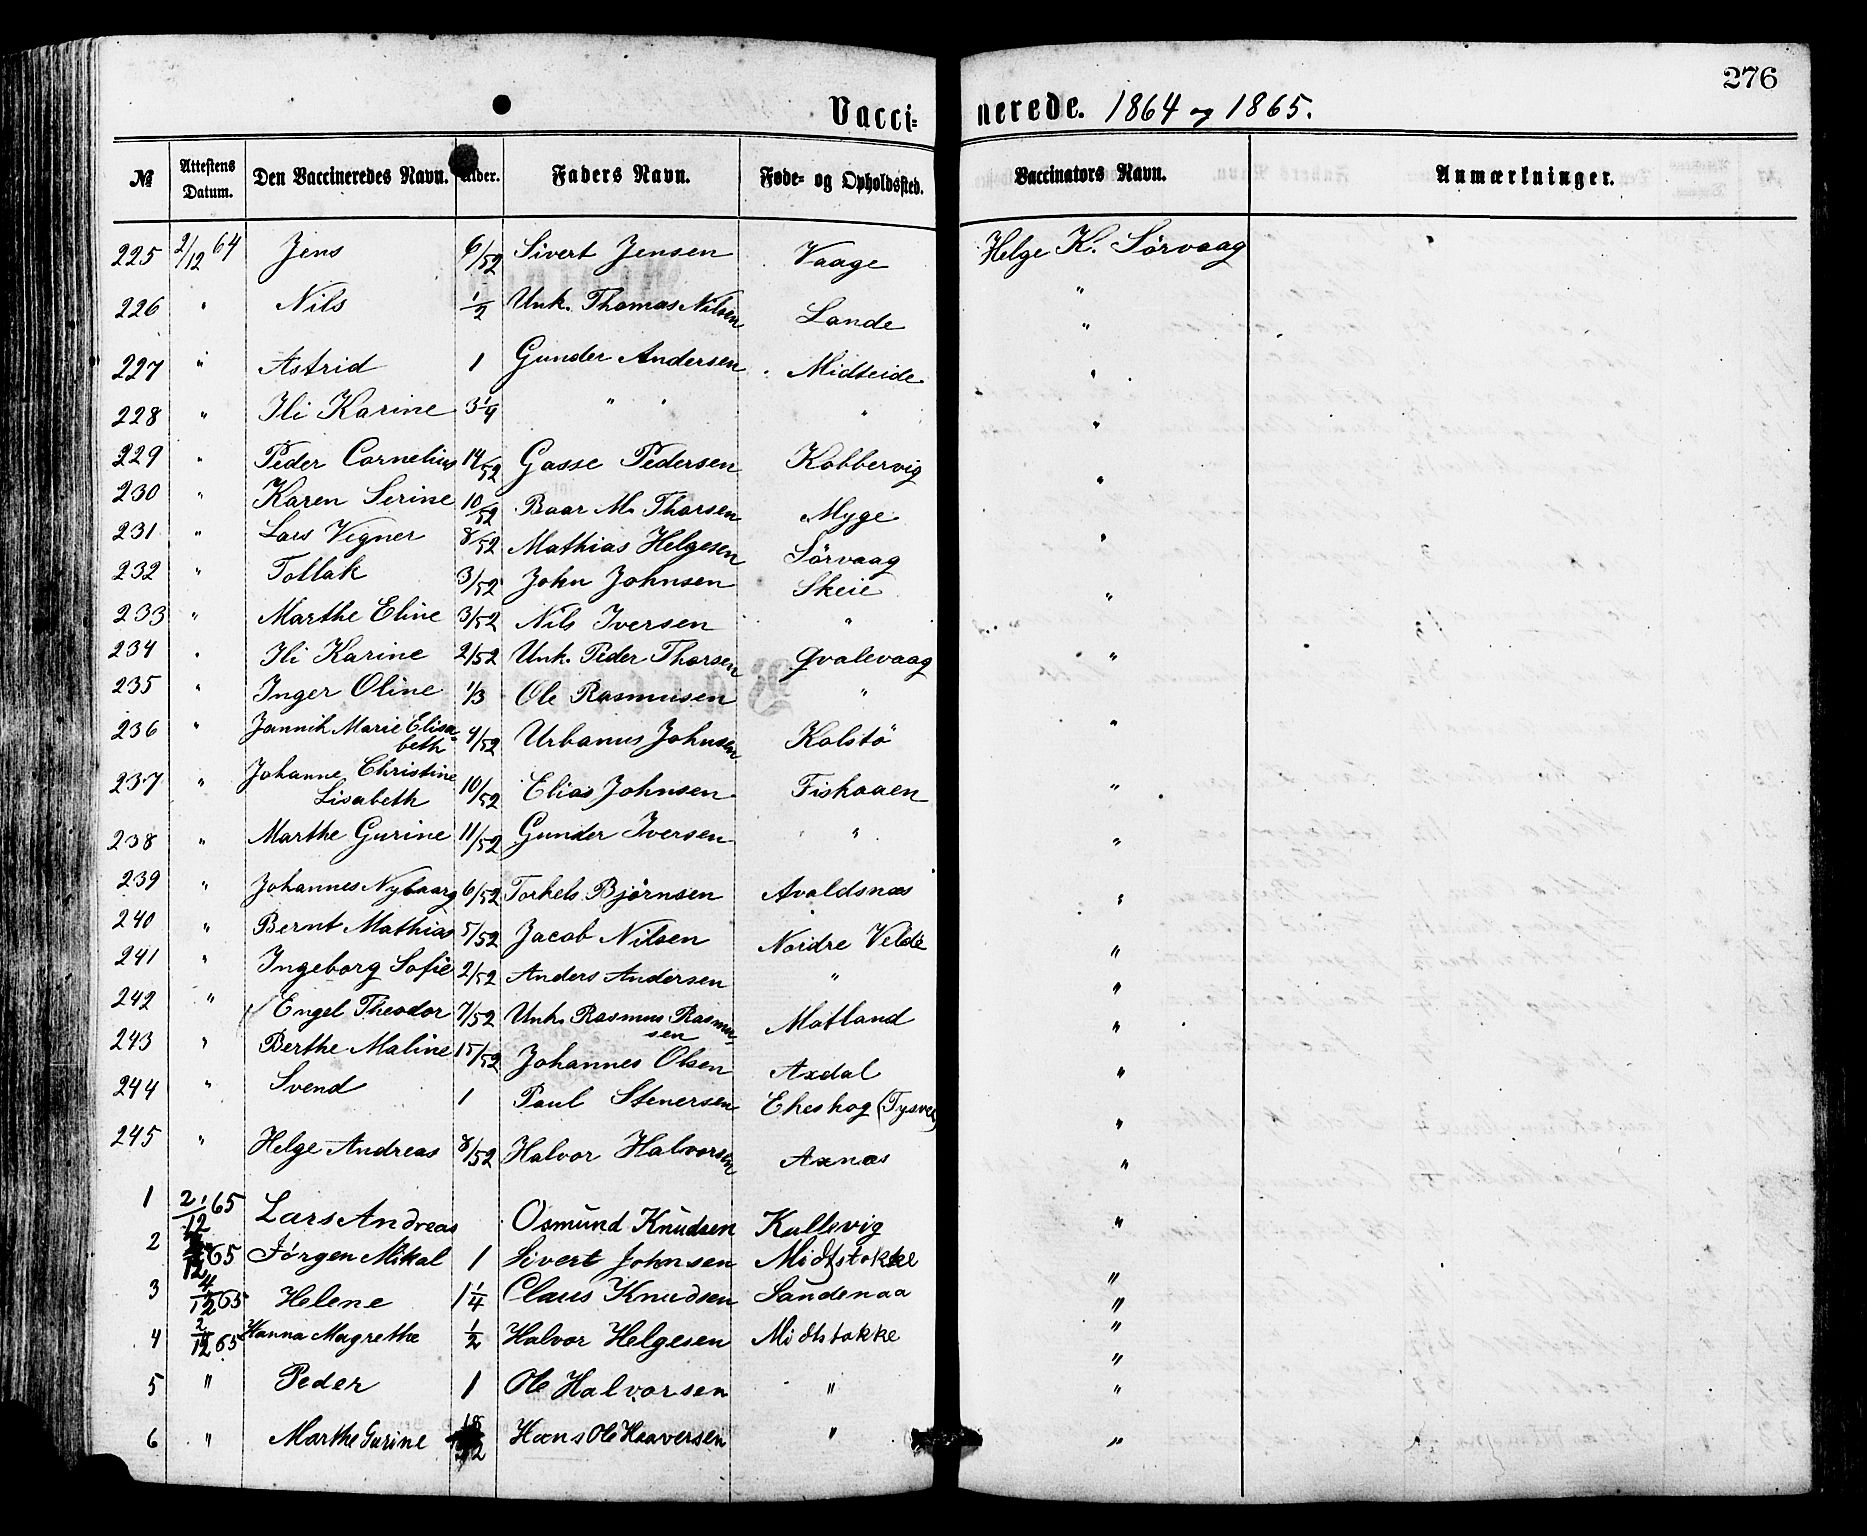 276
Vacci= nerede. 1864 og 1865.
№ Attestens Datum. Den Vaccineredes Navn. Alder. Faders Navn. Føde- og Opholdssted. Vaccinators Navn. Anmærkninger.
225 2/12 64 Jens 6/52 Sivert Jensen Vaage Helge K. Sörvaag
226 " Nils 1/2 Unk. Thomas Nilsen Lande "
227 " Astrid 1 Gunder Andersen Midteide "
228 " Ili Karine 3 1/9 " " " "
229 " Peder Cornelius 14/52 Gasse Pedersen Kobbervig "
230 " Karen Serine 10/52 Baar M. Thorsen Myge "
231 " Lars Vegner 8/52 Mathias Helgesen Sörvaag "
232 " Tollak 3/52 John Johnsen Skeie "
233 " Marthe Eline 3/52 Nils Iversen " "
234 " Ili Karine 2/52 Unk. Peder Thorsen Qvalevaag "
235 " Inger Oline 1/3 Ole Rasmusen " "
236 " Jannik Marie Elisa-
beth 4/52 Urbanus Johnsen Kolstö "
237 " Johanne Christine
Lisabeth 10/52 Elias Johnsen Fiskaaen "
238 " Marthe Gurine 11/52 Gunder Iversen " "
239 " Johannes Nybaarg 6/52 Torkels Björnsen Avaldsnæs "
240 " Bernt Mathias 5/52 Jacob Nilsen Nordre Velde "
241 " Ingeborg Sofie 2/52 Anders Andersen " "
242 " Engel Theodor 7/52 Unk. Rasmus Rasmu-
sen Matland "
243 " Berthe Maline 15/52 Johannes Olsen Axdal "
244 " Svend 1 Paul Stenersen Ekeskog (Tysver) "
245 " Helge Andreas 8/52 Halvor Halvorsen Axnæs "
1 2/12 65 Lars Andreas Osmund Knudsen Kallevig "
2 12 65 Jørgen Mikal 1 Sivert Johnsen Midtstokke "
3 4/12 65 Helene 1 1/4 Claus Knudsen Sandenaa "
4 2/12 65 Hanna Magrethe 1/2 Halvor Helgesen Midtstokke "
5 " Peder 1 Ole Halvorsen " "
6 " Marthe Gurine 18 Hans Ole Haaversen " "